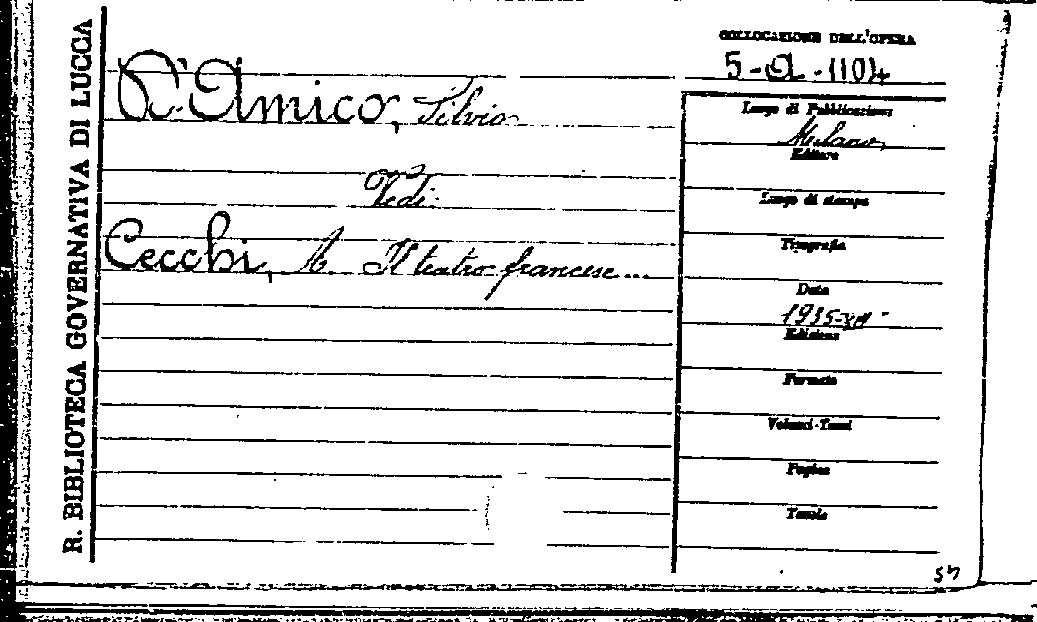 R. BIBLIOTECA GOVERNATIVA DI LUCCA
COLLOCAZIONE DELL'OPERA
5-a-1104
D'Amico, Silvio
Vedi:
Cecchi, A. Il teatro francese...
Luogo di Pubblicazione
Milano
Editore
Luogo di stampa
Tipografia
Data
1935-XIII
Edizione
Formato
Volumi-Tomi
Pagine
Tavole